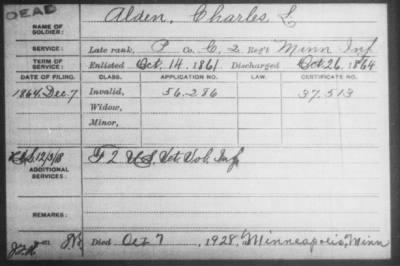 DEAD
NAME OF SOLDIER: Alden, Charles L
SERVICE: Late rank, P Co. C, 2 Reg't Minn Inf
TERM OF SERVICE: Enlisted Oct. 14. 1861 Discharged Oct 26. 1864
DATE OF FILING. CLASS. APPLICATION NO. LAW. CERTIFICATE NO.
1864. Dec. 7 Invalid, 56.286 37.513
Widow,
Minor,
12/3/18 F 2 U.S. Vet. Vol. Inf
ADDITIONAL SERVICES:
REMARKS:
Died Oct 7, 1928, at Minneapolis, Minn